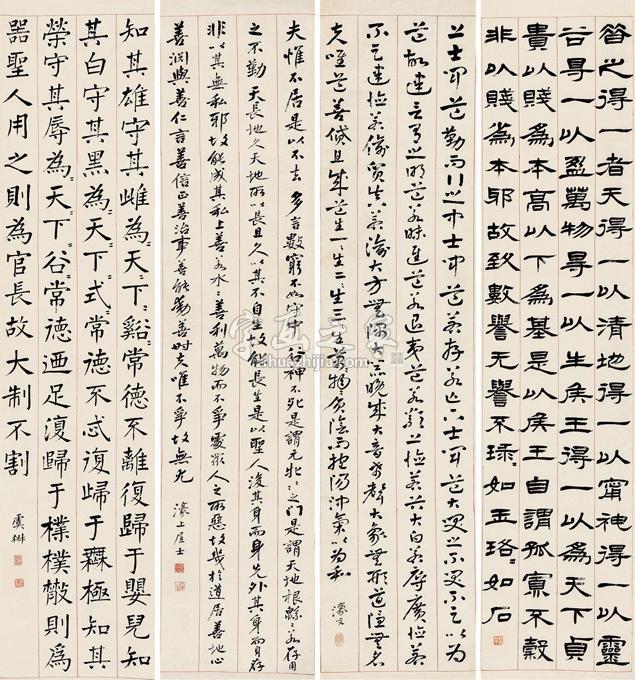 昔之得一者天得一以清地得一以寧神得一以靈
谷得一以盈萬物得一以生矦王得一以為天下貞
貴以賤為本高以下為基是以矦王自謂孤寡不穀
非以賤為本邪故致數譽无譽不琭〃如玉珞〃如石
上士聞道勤而行之中士聞道若存若亡下士聞道大笑之不笑不足以為
道故建言有之明道若昧進道若退夷道若纇上德若谷大白若辱廣德若
不足建德若偷質真若渝大方無隅大器晚成大音希聲大象無形道隱無名
夫唯道善貸且成道生一〃生二〃生三〃生萬物〃負陰而抱陽沖氣以為和
濠叟
夫惟不居是以不去 多言數窮不如守中 谷神不死是謂元牝〃之門是謂天地根緜〃若存用
之不勤 天長地久天地所以長且久以其不自生故能長生是以聖人後其身而身先外其身而身存
非以其無私耶故能成其私上善若水〃善利萬物而不爭處眾人之所惡故幾於道居善地心
善淵與善仁言善信正善治事善能動善時夫唯不爭故無尤
濠上㞐士
知其雄守其雌為〃天〃下〃谿〃常德不離復歸于嬰兒知
其白守其黑為〃天〃下〃式〃常德不忒復歸于無極知其
榮守其辱為〃天〃下〃谷〃常德迺足復歸于樸樸散則為
器聖人用之則為官長故大制不割
虞楙
字画之家
zihuazhijia.com